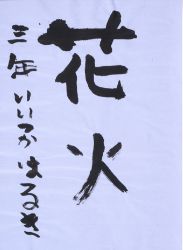 花火
三年 いいつか はるき